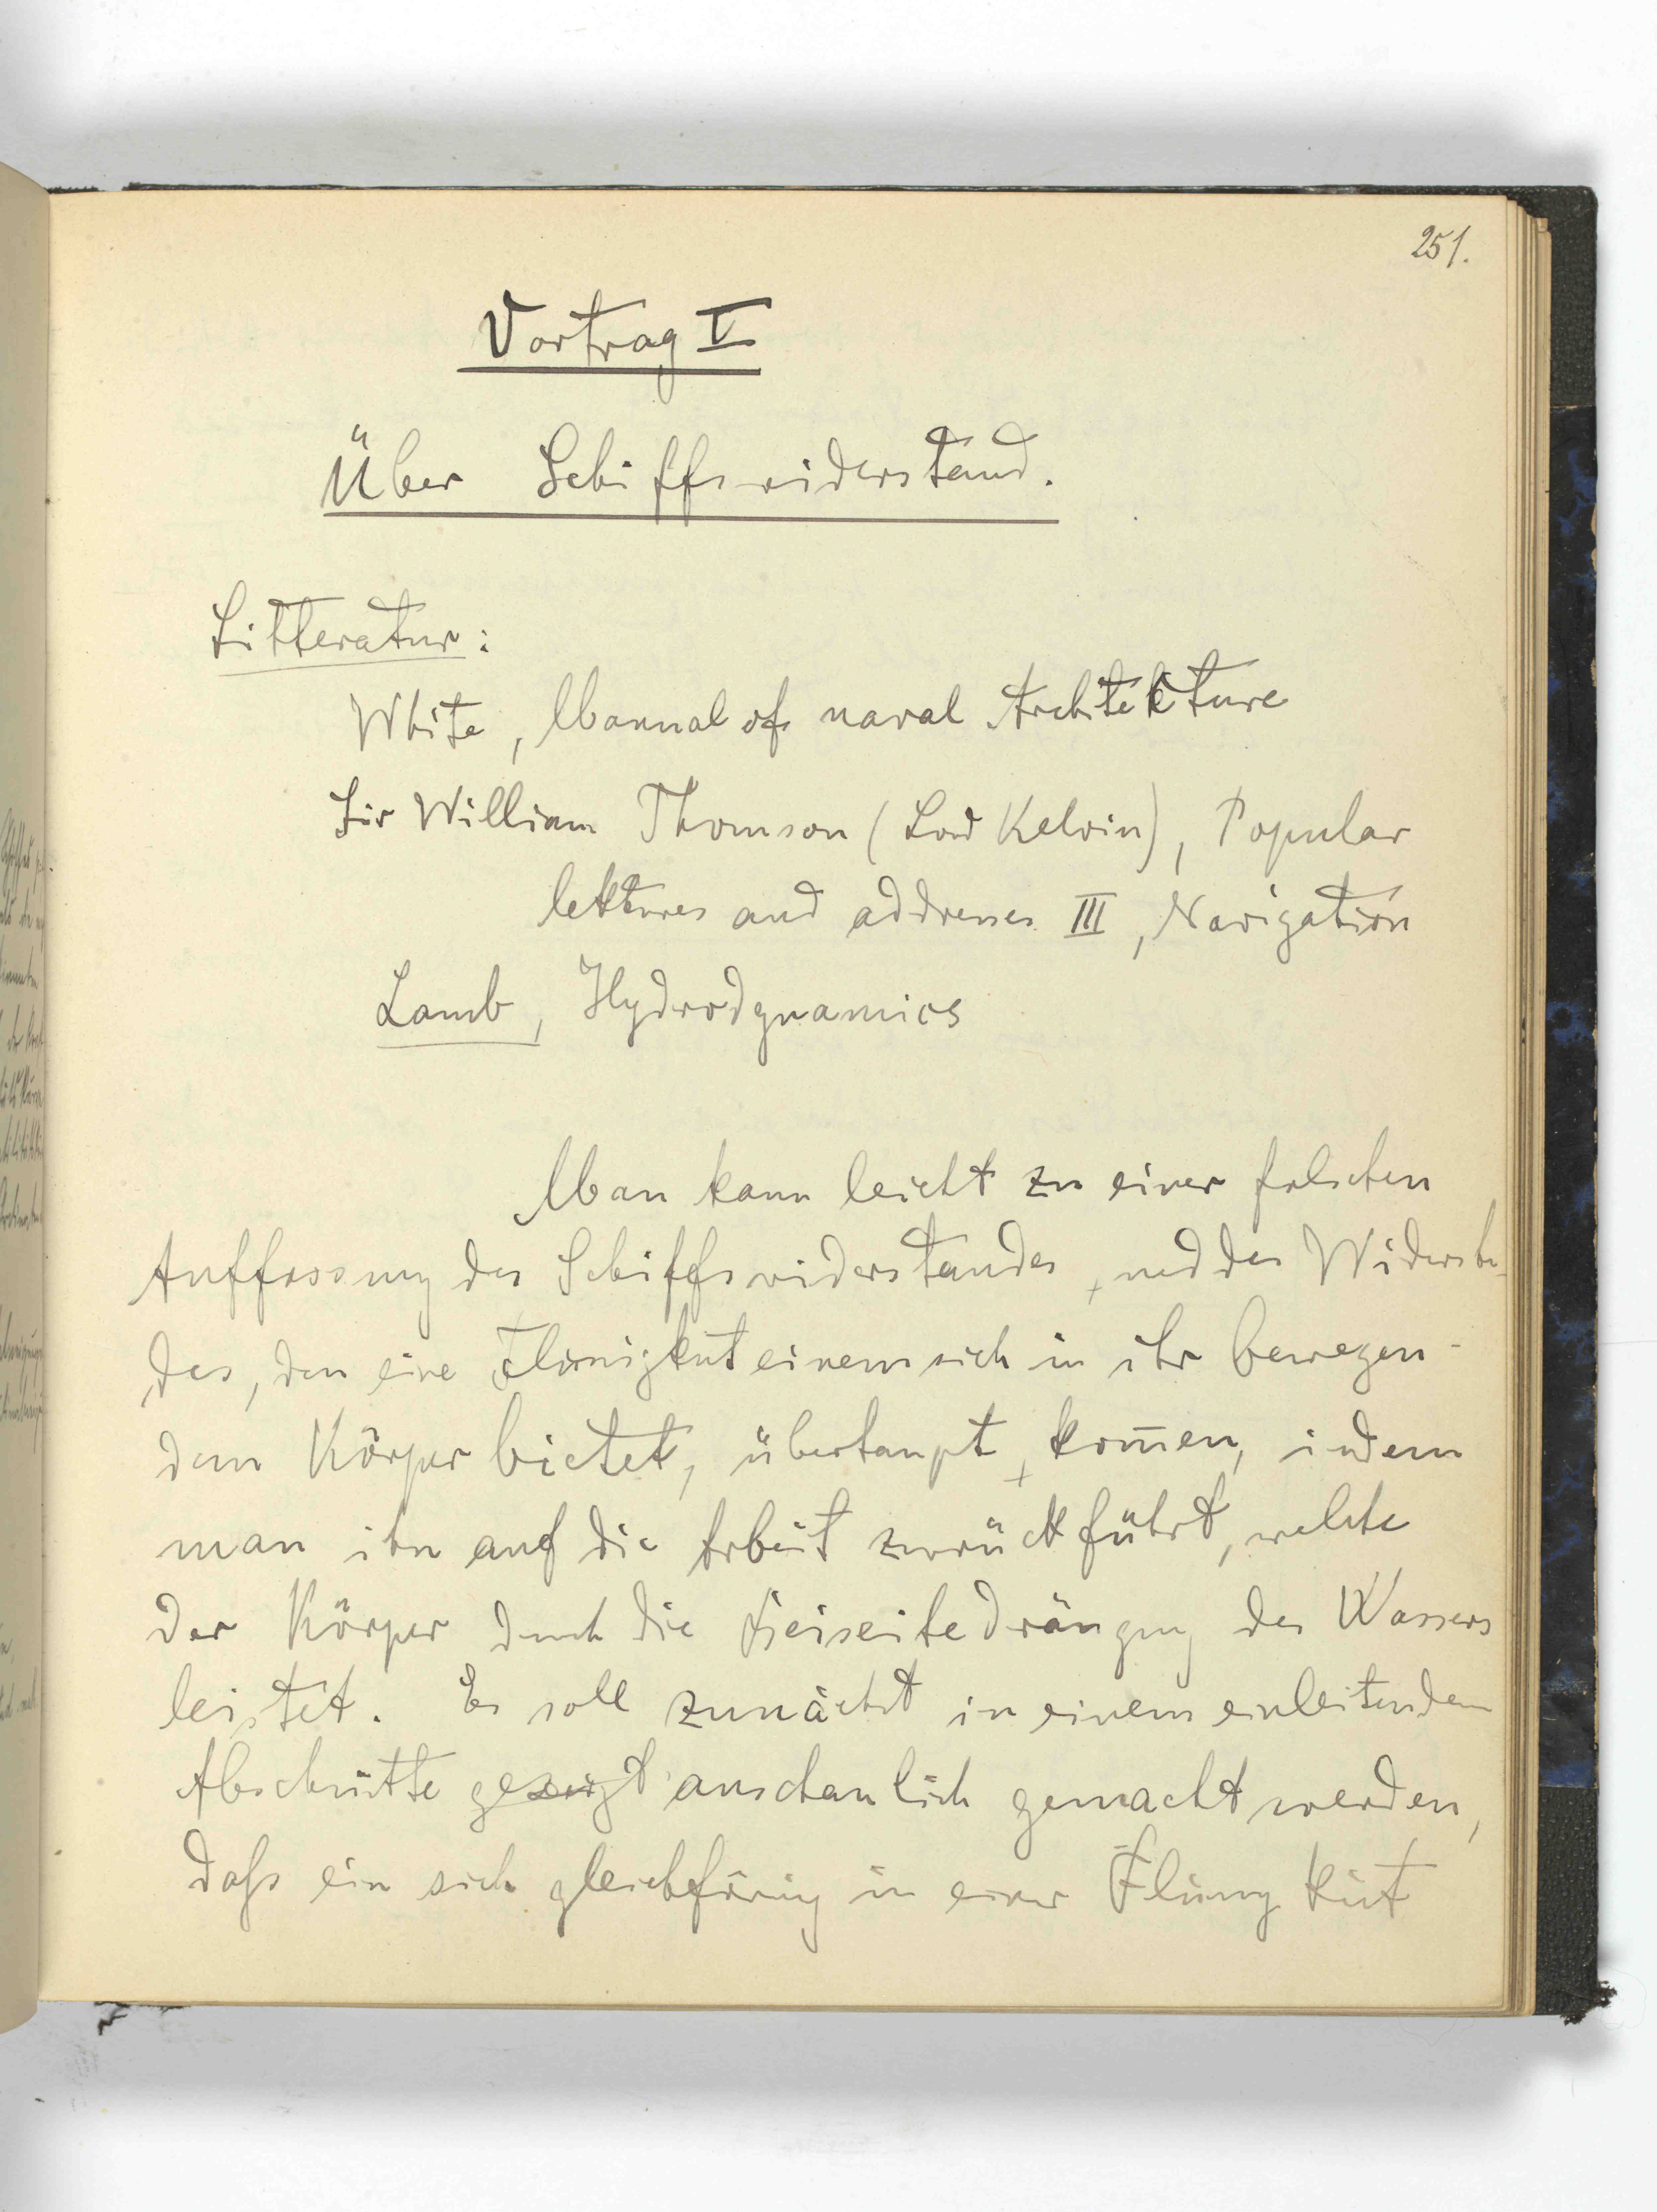 251.
Vortrag V
Über Schiffswiderstand.
Litteratur:
White, Manual of naval Architekture
Sir William Thomson (Lord Kelvin), Popular
lektures and addresses III, Navigation
Lamb, Hydrodynamics
Man kann leicht zu einer falschen
Auffassung des Schiffswiderstandes, und des Widerstan-
des, den eine Flüssigkeit einem sich in ihr bewegen-
dem Körper bietet, überhaupt, kom̄en, indem
man ihn auf die Arbeit zurückführt, welche
der Körper durch die Beiseitedrängung des Wassers
leistet. Es soll zunächst in einem einleitenden
Abschnitte gezeigt anschaulich gemacht werden,
daß ein sich gleichförmig in einer Flüssigkeit